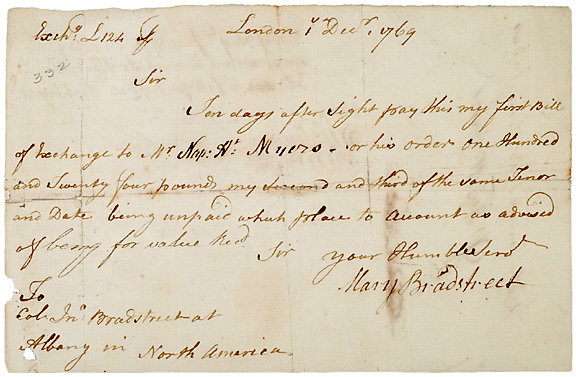 Exch.º £124 Stg London 1st Decr. 1769
332
Sir
Ten days after Sight pay this my first Bill
of Exchange to Mr. Nap: Ht. Myers - or his order One Hundred
and Twenty four pounds my Second and third of the same Tenor
and Date being unpaid which place to account as advised
of being for value Recd
Sir your Humble Servt
Mary Bradstreet
To
Col: Jnº Bradstreet at
Albany in North America